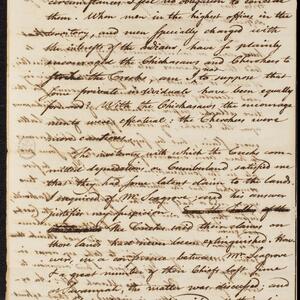 circumstances I feel no
them. When men in the highest offices in the
Territory, and men specially charged with
the interests of the Indians, have so plainly
encouraged the Chickasaws and Cherokees to
the Creeks, am I to suppose that
private individuals have been equally
forward? With the Chickasaws the encourage
ment was effectual: the Cherokees were
more cautious.
The constancy with which the Creeks com
mitted depredations on Cumberland satisfied me
that they had some latent claim to the lands.
I enquired of Mr. Seagrove and his answer
justifies my suspicion.
The Creeks said their claim on
those lands have never been extinguished. How
ever, at a conference between Mr. Seagrove
& a great number of their Chiefs last June
at Savannah, the matter was discussed, and